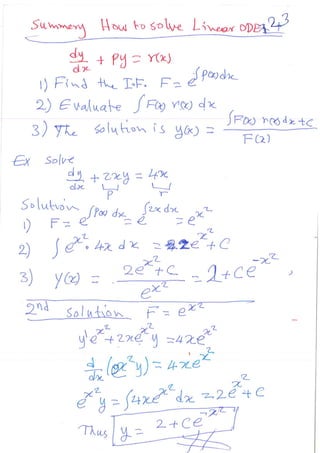 Summery How to solve Linear ODEs 243
dy/dx + Py = r(x)
1) Find the I.F. F = e^∫P(x)dx
2) Evaluate ∫F(x) r(x) dx
3) The solution is y(x) = (∫F(x) r(x) dx + C)/F(x)
Ex solve
dy/dx + 2xy = 4x
P r
Solution
1) F = e^∫P(x) dx = e^∫2xdx = e^x²
2) ∫e^x² · 4x dx = 2e^x² + C
3) y(x) = (2e^x² + C)/e^x² = 2 + Ce^-x²
2nd solution F = e^x²
y'e^x² + 2xe^x² y = 4xe^x²
d/dx (e^x² y) = 4xe^x²
e^x² y = ∫4xe^x² dx = 2e^x² + C
Thus y = 2 + Ce^-x²